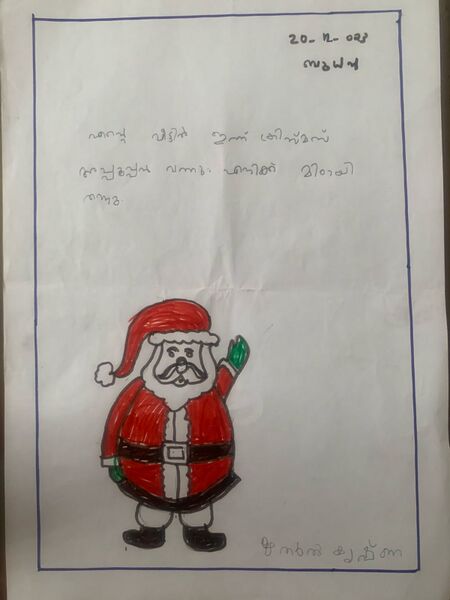 20-12-023
ബുധൻ
എന്റെ വീട്ടിൽ ഇന്ന് ക്രിസ്മസ്
അപ്പൂപ്പൻ വന്നു. എനിക്ക് മിഠായി
തന്നു.
കൃഷ്ണ